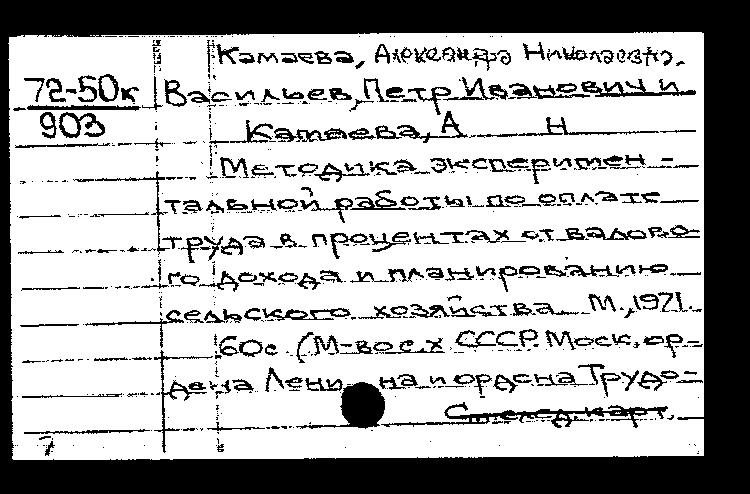 Камаева, Александра Николаевна.
72-50к Васильев, Петр Иванович и
903 Камаева, А Н
Методика эксперимен-
тальной работы по оплате
труда в процентах от валово-
го дохода и планированию
сельского хозяйства. М., 1971.
60с. (М-во с.х СССР. Моск. ор-
дена Лени на и ордена Трудо-
См. след. карт.
7